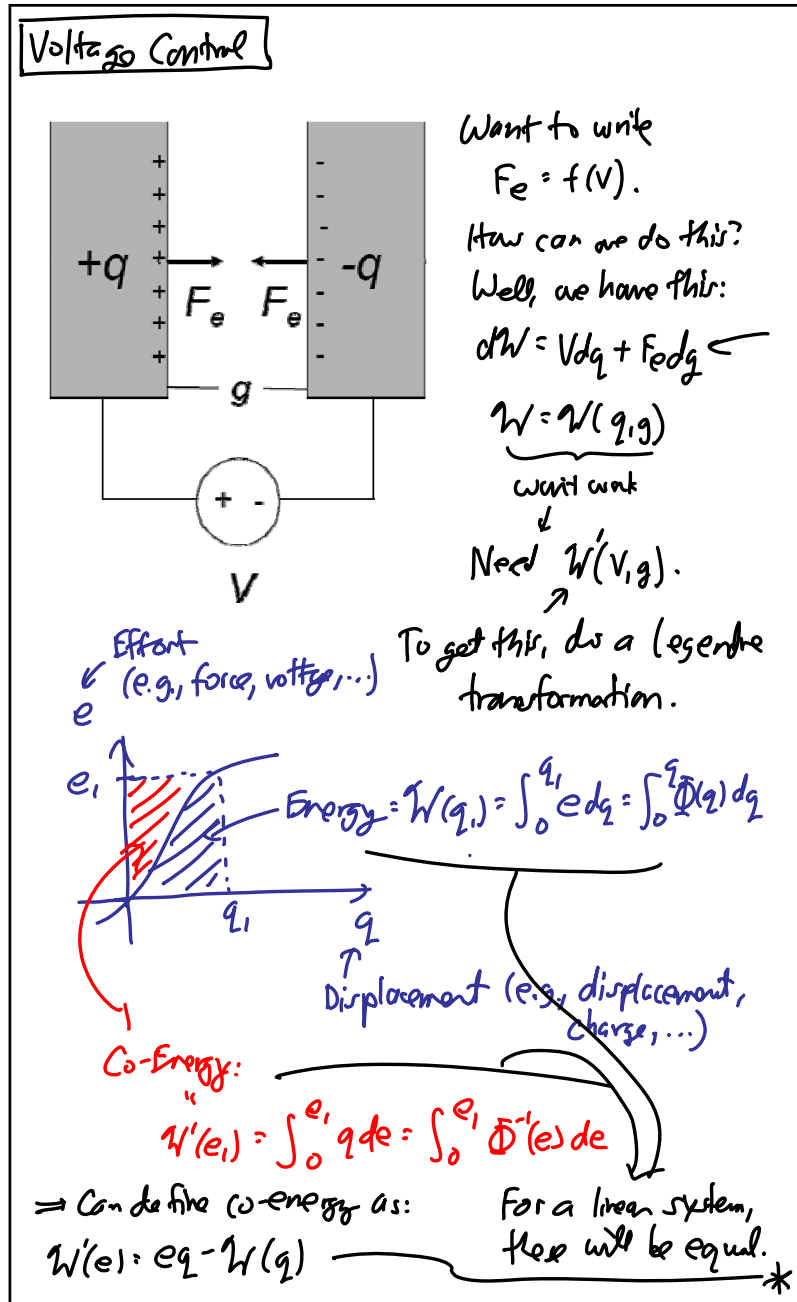 Voltage Control
Want to write
Fe = f(V).
How can we do this?
Well, we have this:
dW = Vdq + Fedg
W = W(q,g)
won't work
Need W'(V,g).
To get this, do a Legendre
transformation.
+ + + + + + +
- - - - - - -
+q
-q
Fe Fe
g
+ -
V
Effort
(e.g., force, voltage, ...)
e
e₁
Energy = W(q₁) = ∫₀^q₁ e dq = ∫₀^q₁ Φ(q) dq
q₁
q
Displacement (e.g., displacement,
charge, ...)
Co-Energy:
W'(e₁) = ∫₀^e₁ q de = ∫₀^e₁ Φ⁻¹(e) de
⇒ Can define co-energy as:
W'(e) = eq - W(q)
For a linear system,
these will be equal.
*